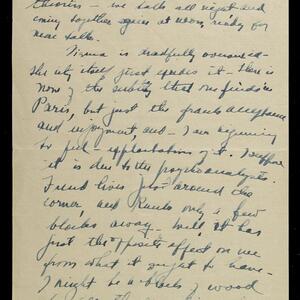 theories – we talk all night and
coming together again at noon, ready for
more talk.
Vienna is dreadfully oversexed –
the city itself just exudes it – there is
none of the subtlety that one finds in
Paris, but just the frank acceptance
and enjoyment, and – I am beginning
to feel it. I suppose
it is due to the psychoanalysts.
Freud lives just around the
corner, and Ranks only a few
blocks away. Well, it has
just the opposite effect on me
from what it ought to have –
I might be a block of wood